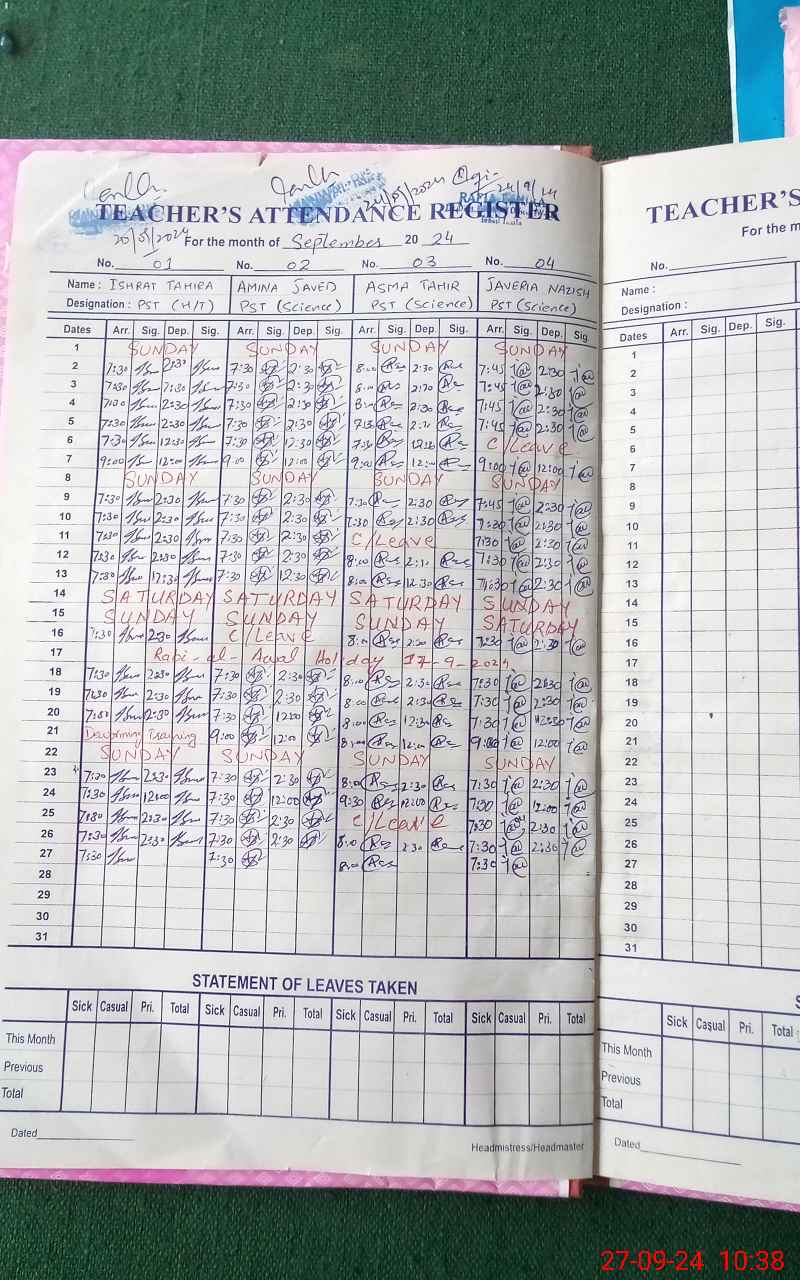 TEACHER'S ATTENDANCE REGISTER
For the month of September 20 24
No. 01 No. 02 No. 03 No. 04
Name : ISHRAT TAHIRA AMINA JAVED ASMA TAHIR JAVERIA NAZISH
Designation : PST (H/T) PST (Science) PST (Science) PST (Science)
Dates Arr. Sig. Dep. Sig. Arr. Sig. Dep. Sig. Arr. Sig. Dep. Sig. Arr. Sig. Dep. Sig.
1 SUNDAY SUNDAY SUNDAY SUNDAY
2 7:30 2:30 7:30 2:30 8:00 2:30 7:45 2:30
3 7:30 2:30 7:30 2:30 8:00 7:45 2:30
4 7:30 2:30 7:30 2:30 8:00 2:30 7:45 2:30
5 7:30 2:30 7:30 2:30 7:45 2:30
6 7:30 12:30 7:30 12:30 7:30 12:30 C/Leave
7 9:00 12:00 9:00 12:00 9:00 12:00 9:00 12:00
8 SUNDAY SUNDAY SUNDAY SUNDAY
9 7:30 2:30 7:30 2:30 7:30 2:30 7:45 2:30
10 7:30 2:30 7:30 2:30 7:30 2:30 7:30 2:30
11 7:30 2:30 7:30 2:30 C/Leave 7:30 2:30
12 7:30 2:30 7:30 2:30 8:00 2:30 7:30 2:30
13 7:30 12:30 7:30 12:30 8:00 12:30 7:30 2:30
14 SATURDAY SATURDAY SATURDAY SUNDAY
15 SUNDAY SUNDAY SUNDAY SATURDAY
16 7:30 2:30 C/Leave 8:00 2:30 7:30 2:30
17 Rabi-al-Awal Holiday 17-9-2024
18 7:30 2:30 7:30 2:30 8:00 2:30 7:30 2:30
19 7:30 2:30 7:30 2:30 8:00 2:30 7:30 2:30
20 7:30 7:30 12:00 8:00 12:30 7:30
21 Deworming Training 9:00 12:00 8:00 12:00 9:00 12:00
22 SUNDAY SUNDAY SUNDAY SUNDAY
23 7:30 2:30 7:30 2:30 8:00 2:30 7:30 2:30
24 7:30 12:00 7:30 12:00 9:30 12:00 7:30 12:00
25 7:30 2:30 7:30 2:30 C/Leave 7:30 2:30
26 7:30 2:30 7:30 2:30 8:00 2:30 7:30 2:30
27 7:30 7:30 8:00 7:30
28
29
30
31
STATEMENT OF LEAVES TAKEN
Sick Casual Pri. Total Sick Casual Pri. Total Sick Casual Pri. Total Sick Casual Pri. Total
This Month
Previous
Total
Dated
Headmistress/Headmaster
TEACHER'S
For the m
No.
Name :
Designation :
Dates Arr. Sig. Dep. Sig.
1
2
3
4
5
6
7
8
9
10
11
12
13
14
15
16
17
18
19
20
21
22
23
24
25
26
27
28
29
30
31
S
Sick Casual Pri. Total
This Month
Previous
Total
Dated
27-09-24 10:38